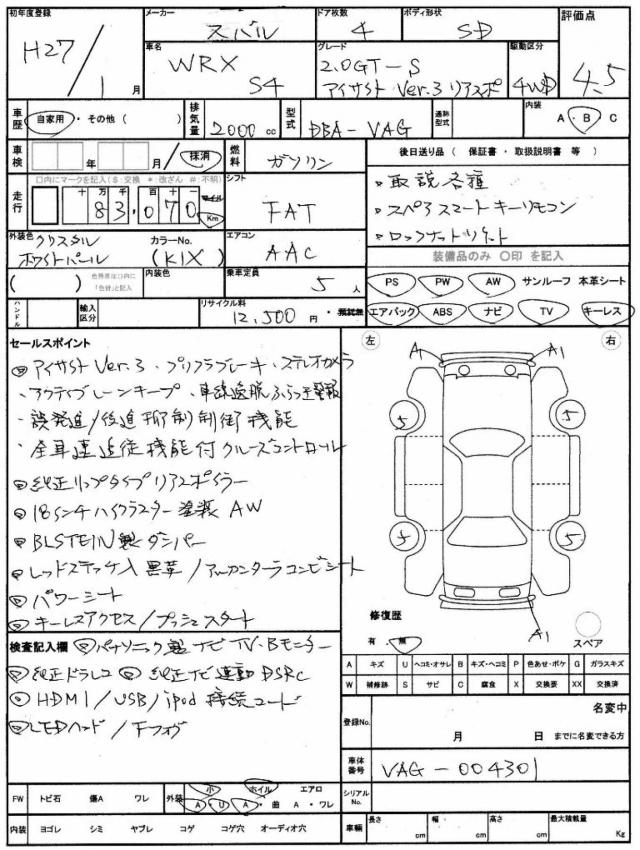 初年度登録 メーカー ドア枚数 ボディ形状 評価点
H27/1月 スバル 4 SD 4.5
車名 グレード 駆動区分
WRX S4 2.0GT-S アイサイト Ver.3 リアスポ 4WD
車歴 自家用・その他( ) 排気量 2000cc 型式 DBA-VAG 通称型式 内装 A・B・C
車検 年 月/ 抹消 燃料 ガソリン 後日送り品( 保証書・取扱説明書 等 )
□内にマークを記入(S:交換 *改ざん #:不明) シフト
走行 十 万 千 百 十 一 マイル Km
83,070 FAT
・取説各種
・スペアスマートキーリモコン
・ロックナットソケット
外装色 クリスタルホワイトパール カラーNo. (K1X) エアコン AAC
装備品のみ ○印 を記入
( ) 内装色 乗車定員 5人
PS PW AW サンルーフ 本革シート
ハンドル 輸入区分 リサイクル料 12,500円・
エアバック ABS ナビ TV キーレス
セールスポイント 左 右
◎アイサイト Ver.3・プリクラブレーキ・ステレオカメラ A1 A1
・アクティブレーンキープ・車線逸脱ふらつき警報
・誤発進/後進抑制制御機能 5 5
・全車速追従機能付クルーズコントロール
◎純正リップタイプリアスポイラー
◎18インチハイラスター塗装AW
◎BLSTEIN製ダンパー 5 5
◎レッドステッチ入 黒革/アルカンターラコンビシート
◎パワーシート
◎キーレスアクセス/プッシュスタート
修復歴 有・無 A1 スペア
検査記入欄 ◎パナソニック製ナビTV・Bモニター
A キズ U ヘコミ・オサレ B キズ・ヘコミ P 色あせ・ボケ G ガラスキズ
◎純正ドラレコ ◎純正ナビ連動DSRC
W 補修跡 S サビ C 腐食 X 交換要 XX 交換済
◎HDMI/USB/ipod接続コード
◎LEDヘッド/Fフォグ
登録No. 名変中
月 日 までに名変できる方
車体番号 VAG-004301
FW トビ石 傷A ワレ 外装 小 ホイル エアロ
A・U A・曲 A・ワレ
シリアルNo.
内装 ヨゴレ シミ ヤブレ コゲ コゲ穴 オーディオ穴
車輌 長さ cm 幅 cm 高さ cm 最大積載量 Kg